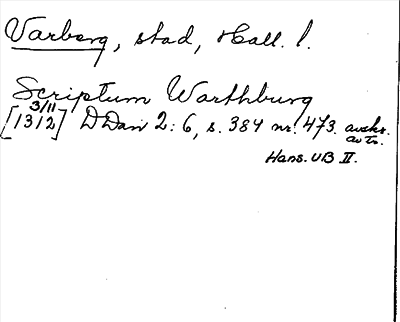 Varberg, stad, Hall. l.
Scriptum Warthburg
3/11
[1312] DDan 2: 6, s. 384 nr. 473. avskr.
av to.
Hans. UB II.